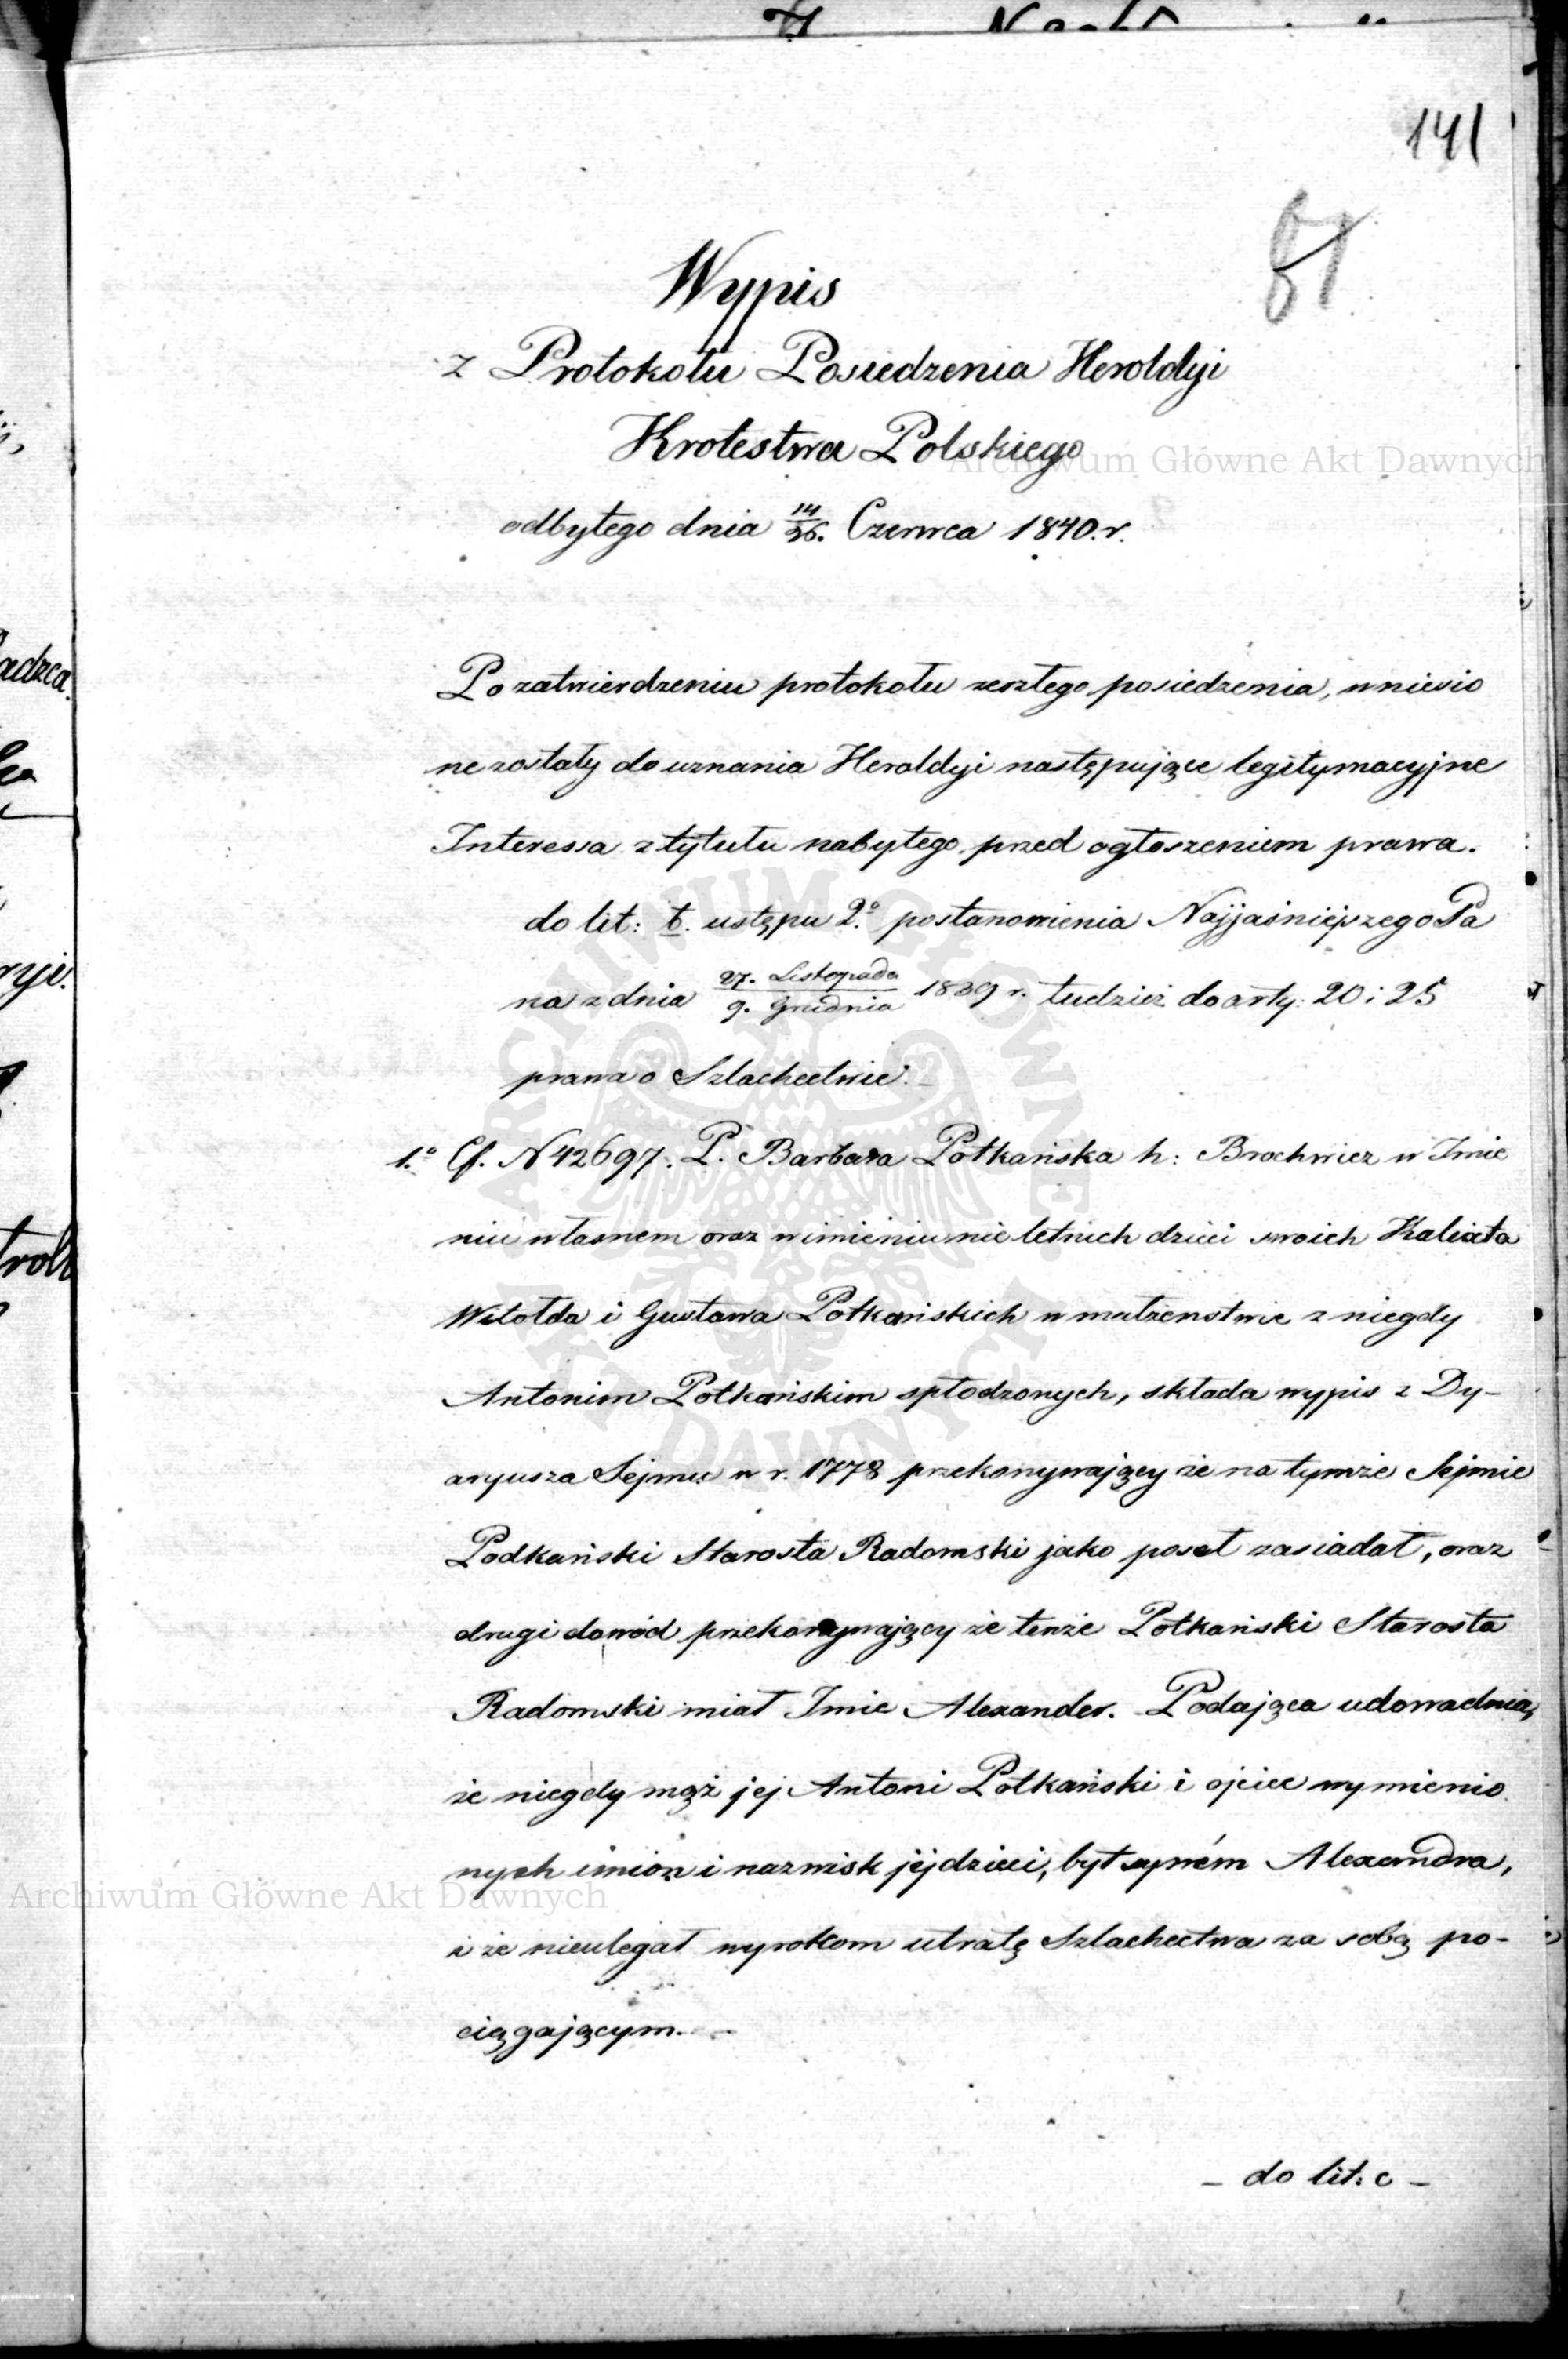 141
81
Wypis
z Protokołu Posiedzenia Heroldyi
Krolestwa Polskiego
odbytego dnia 14/26. Czerwca 1840.r.
Po zatwierdzeniu protokołu zeszłego posiedzenia, wniesio
ne zostały do uznania Heroldyi następujące legitymacyjne
Interessa z tytułu nabytego przed ogłoszeniem prawa.
do lit: b. ustępu 2.° postanowienia Najjaśniejszego Pa
na z dnia 27. Listopada / 9. Grudnia 1839 r. tudzież do arty: 20 i 25
prawa o Szlachectwie.
1.° Cf. N 42697. P. Barbara Potkańska h: Brochwicz w Imie
niu własnem oraz w imieniu nieletnich dzieci swoich Kalixta
Witolda i Gustawa Potkańskich w małzenstwie z niegdy
Antonim Potkańskim spłodzonych, składa wypis z Dy-
aryusza Sejmu w r. 1778 przekonywający że na tymże Sejmie
Podkański Starosta Radomski jako poseł zasiadał, oraz
drugi dowód przekonywający że tenże Potkański Starosta
Radomski miał Imie Alexander. Podająca udowadnia,
że niegdy mąż jej Antoni Potkański i ojciec wymienio
nych imion i nazwisk jej dzieci, był synem Alexandra,
i że nieulegał wyrokom utratę Szlachectwa za sobą po-
ciągającym.
- do lit: c -
adzca.
ryi.
Archiwum Główne Akt Dawnych
Archiwum Główne Akt Dawnych
ARCHIWUM GŁÓWNE AKT DAWNYCH